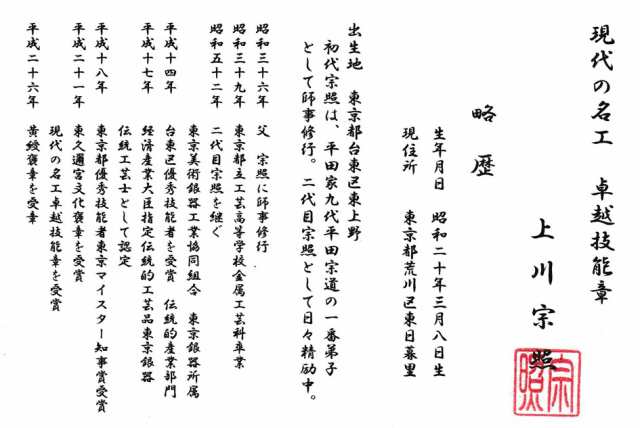 現代の名工 卓越技能章
上川宗照
宗照
略歴
生年月日 昭和二十年三月八日生
現住所 東京都荒川区東日暮里
出生地 東京都台東区東上野
初代宗照は、平田家九代平田宗道の一番弟子
として師事修行。二代目宗照として日々精励中。
昭和三十六年 父 宗照に師事修行
昭和三十九年 東京都立工芸高等学校金属工芸科卒業
昭和五十二年 二代目宗照を継ぐ
東京美術銀器工業協同組合 東京銀器所属
平成十四年 台東区優秀技能者を受賞 伝統的産業部門
平成十七年 経済産業大臣指定伝統的工芸品東京銀器
伝統工芸士として認定
平成十八年 東京都優秀技能者東京マイスター知事賞受賞
平成二十一年 東久邇宮文化褒章を受賞
現代の名工卓越技能章を受賞
平成二十六年 黄綬褒章を受章